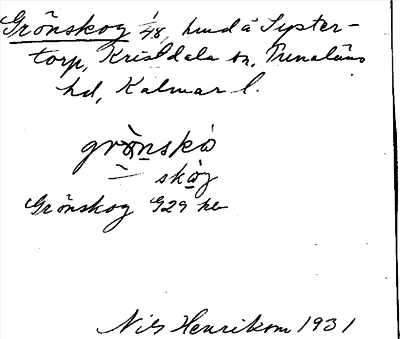 Grönskog 1/48, hmd å Syster-
torp, Kristdala sn, Tunaläns
hd, Kalmar l.
grö̀nskò
skòg
Grönskog G29 ke
Nils Henrikson 1931